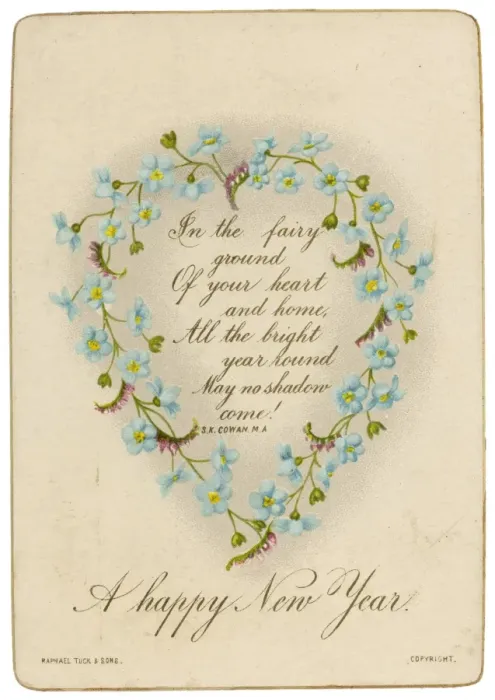 In the fairy
ground
Of your heart
and home,
All the bright
year round
May no shadow
come!
S.K. COWAN, M.A
A happy New Year.
RAPHAEL TUCK & SONS.
COPYRIGHT.